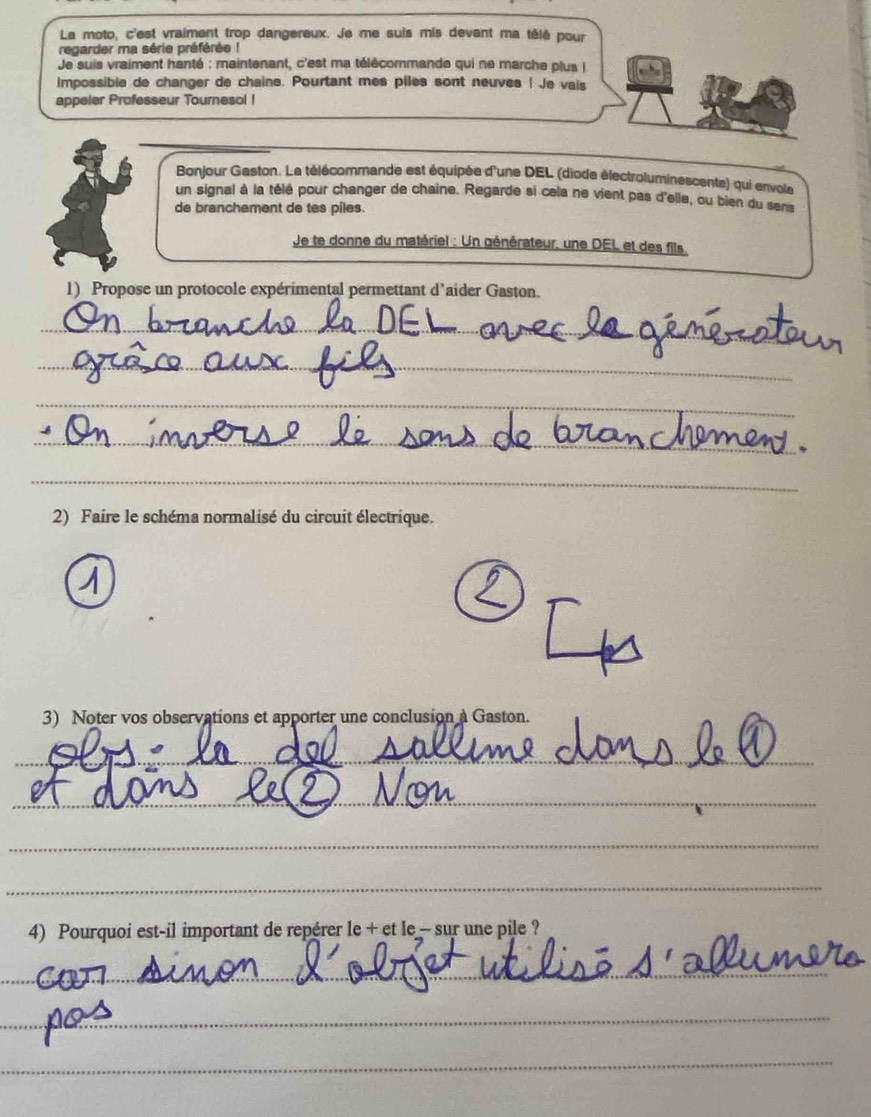 La moto, c'est vraiment trop dangereux. Je me suis mis devant ma télé pour
regarder ma série préférée !
Je suis vraiment hanté : maintenant, c'est ma télécommande qui ne marche plus !
Impossible de changer de chaine. Pourtant mes piles sont neuves ! Je vais
appeler Professeur Tournesol !
Bonjour Gaston. La télécommande est équipée d'une DEL (diode électroluminescente) qui envoie
un signal à la télé pour changer de chaine. Regarde si cela ne vient pas d'elle, ou bien du sens
de branchement de tes piles.
Je te donne du matériel : Un générateur, une DEL et des fils.
1) Propose un protocole expérimental permettant d'aider Gaston.
On branche la DEL avec le générateur
grâce aux fils
• On inverse le sens de branchement.
2) Faire le schéma normalisé du circuit électrique.
1
2
3) Noter vos observations et apporter une conclusion à Gaston.
obs : la del sallume dans le 1
et dans le 2 Non
4) Pourquoi est-il important de repérer le + et le – sur une pile ?
car sinon l'objet utilisé s'allumera
pas